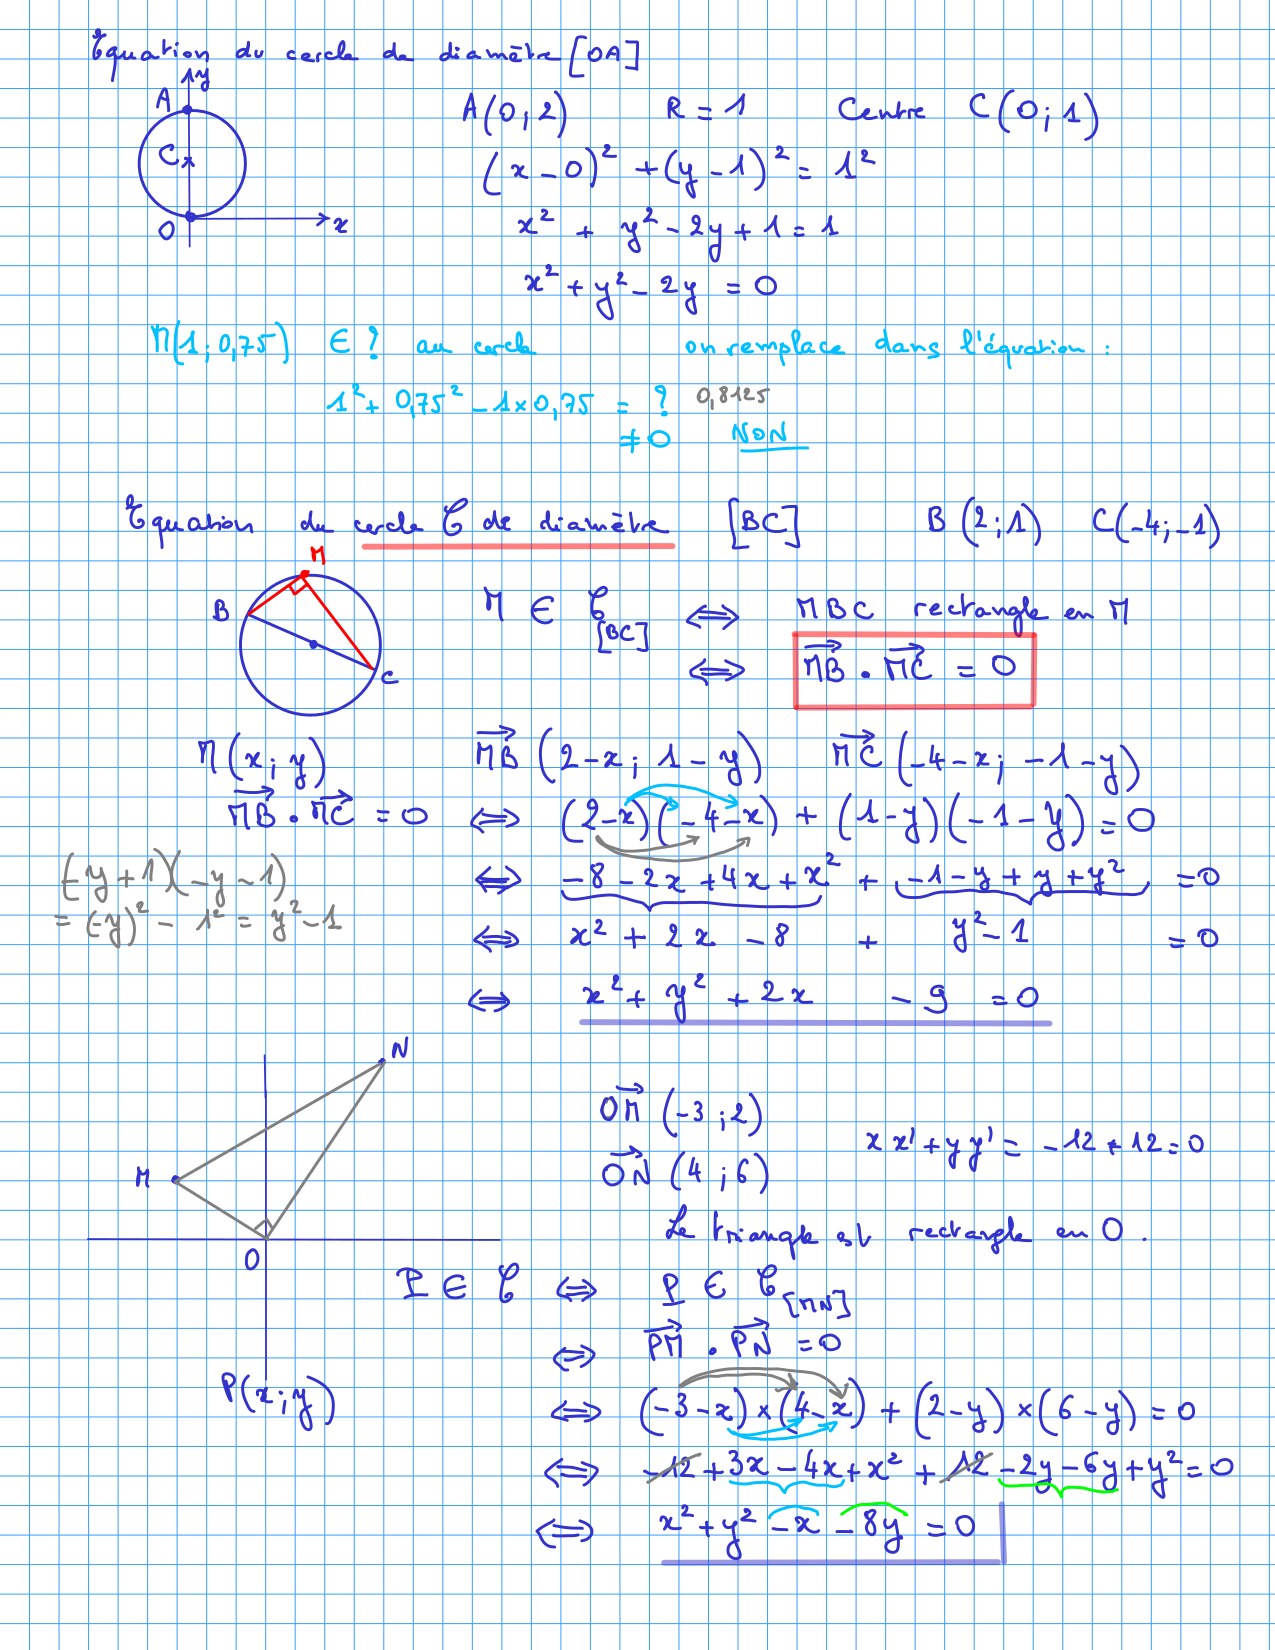 Equation du cercle de diamètre [OA]
y
A
C
O
x
A(0;2) R = 1 Centre C(0;1)
(x-0)² + (y-1)² = 1²
x² + y² - 2y + 1 = 1
x² + y² - 2y = 0
M(1;0,75) ∈ ? au cercle on remplace dans l'équation :
1² + 0,75² - 1×0,75 = ? 0,8125
≠ 0 NON
Equation du cercle C de diamètre [BC] B(2;1) C(-4;-1)
M
B
C
M ∈ C[BC] ⇔ MBC rectangle en M
⇔ MB⃗ . MC⃗ = 0
M(x;y) MB⃗ (2-x; 1-y) MC⃗ (-4-x; -1-y)
MB⃗ . MC⃗ = 0 ⇔ (2-x)(-4-x) + (1-y)(-1-y) = 0
(-y+1)(-y-1)
= (-y)² - 1² = y² - 1
⇔ -8 - 2x + 4x + x² + -1 - y + y + y² = 0
⇔ x² + 2x - 8 + y² - 1 = 0
⇔ x² + y² + 2x - 9 = 0
N
M
O
OM⃗ (-3;2)
ON⃗ (4;6)
xx' + yy' = -12 + 12 = 0
Le triangle est rectangle en O.
P ∈ C ⇔ P ∈ C[MN]
⇔ PM⃗ . PN⃗ = 0
P(x;y)
⇔ (-3-x)×(4-x) + (2-y)×(6-y) = 0
⇔ -12 + 3x - 4x + x² + 12 - 2y - 6y + y² = 0
⇔ x² + y² - x - 8y = 0